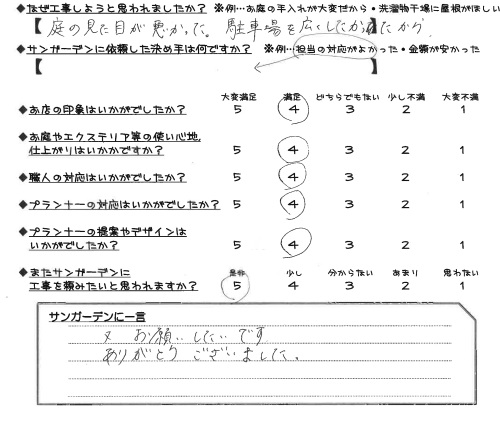 ◆なぜ工事しようと思われましたか？ ※例…お庭の手入れが大変だから・洗濯物干場に屋根がほしい
【 庭の見た目が悪かった。駐車場を広くしたかったから 】
◆サンガーデンに依頼した決め手は何ですか？ ※例…担当の対応がよかった・金額が安かった
【 】
大変満足 満足 どちらでもない 少し不満 大変不満
◆お店の印象はいかがでしたか？ 5 4 3 2 1
◆お庭やエクステリア等の使い心地、
仕上がりはいかがですか？ 5 4 3 2 1
◆職人の対応はいかがでしたか？ 5 4 3 2 1
◆プランナーの対応はいかがでしたか？ 5 4 3 2 1
◆プランナーの提案やデザインは
いかがでしたか？ 5 4 3 2 1
◆またサンガーデンに 是非 少し 分からない あまり 思わない
工事を頼みたいと思われますか？ 5 4 3 2 1
サンガーデンに一言
又 お願いしたいです
ありがとうございました。